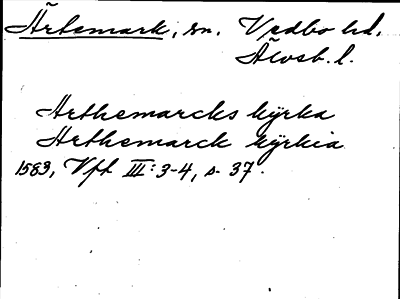 Ärtemark, sn. Vedbo hd.
Älvsb. l.
Arthemarcks kÿrka
Arthemarck kÿrkia
1583, Vft III: 3-4, s. 37.